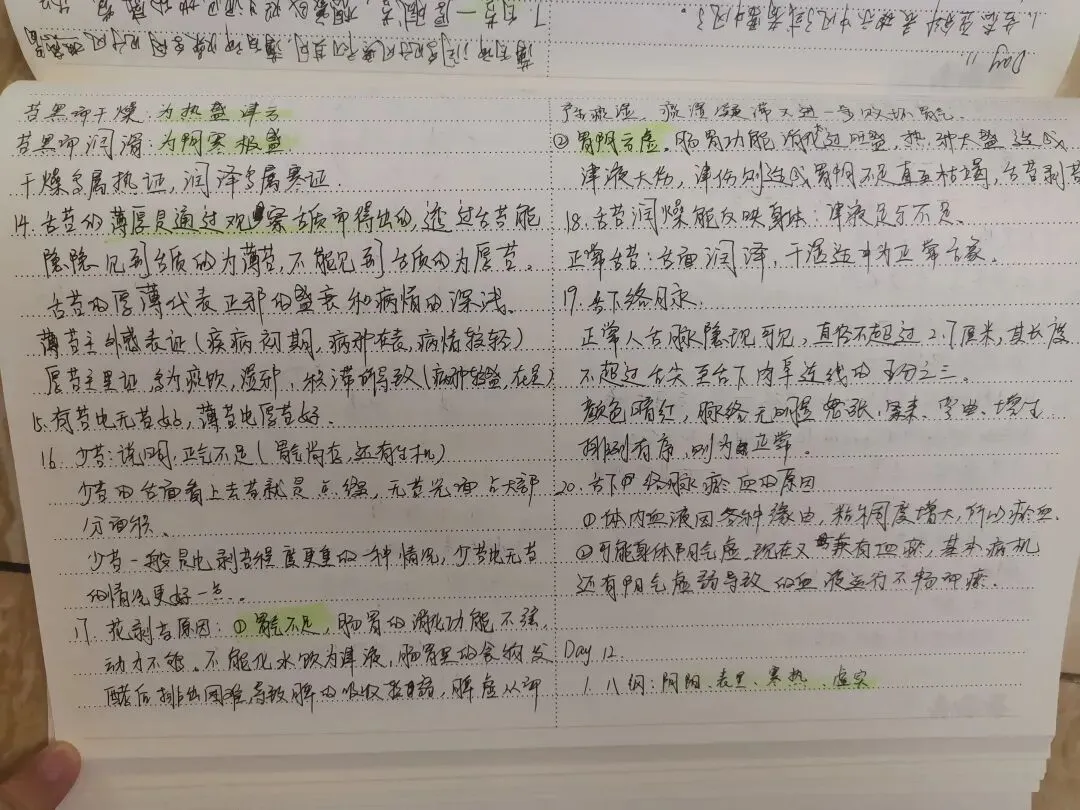 苔黑而干燥:为热盛津亏
苔黑而润滑:为阳寒极盛
干燥多属热证,润泽多属寒证.
14. 舌苔的薄厚是通过观察舌质而得出的,透过舌苔能
隐隐见到舌质的为薄苔,不能见到舌质的为厚苔。
舌苔的厚薄代表正邪的盛衰和病情的深浅。
薄苔主外感表证(疾病初期,病邪在表,病情较轻)
厚苔主里证,多为痰饮,湿邪、积滞所导致(病邪较盛,在里)
15. 有苔比无苔好,薄苔比厚苔好.
16. 少苔:说明,正气不足(胃气尚存,还有生机)
少苔的舌面看上去苔就是点缀,无苔光面占大部
分面积、
少苔一般是比剥苔程度更重的一种情况,少苔比无苔
的情况更好一点。
17. 花剥苔原因:①胃气不足,肠胃的消化功能不强,
动力不够。不能化水饮为津液,肠胃里的食物发
酵后排出困难导致脾的吸收较弱,脾虚从而
产生痰湿.痰浊凝滞又进一步败坏胃气.
②胃阴亏虚.肠胃功能消化过旺盛,热邪太盛造成
津液大伤,津伤则造成胃阴不足直至枯竭,舌苔剥苔
18. 舌苔润燥能反映身体:津液足与不足.
正常舌苔:舌面润泽,干湿适中为正常舌象。
19. 舌下络脉.
正常人舌脉隐现可见,直径不超过2.7厘米,其长度
不超过舌尖至舌下肉阜连线的五分之三.
颜色暗红,脉络无明显怒张、紧束、弯曲、增生
排列有序,则为正常.
20. 舌下络脉瘀血的原因
①体内血液因各种缘由,粘稠度增大,所以瘀血.
②可能身体阳气虚.现在又兼有血瘀,基本病机
还有阳气虚弱导致的血液运行不畅而瘀.
Day 12.
1. 八纲:阴阳、表里、寒热、虚实
Day 11.